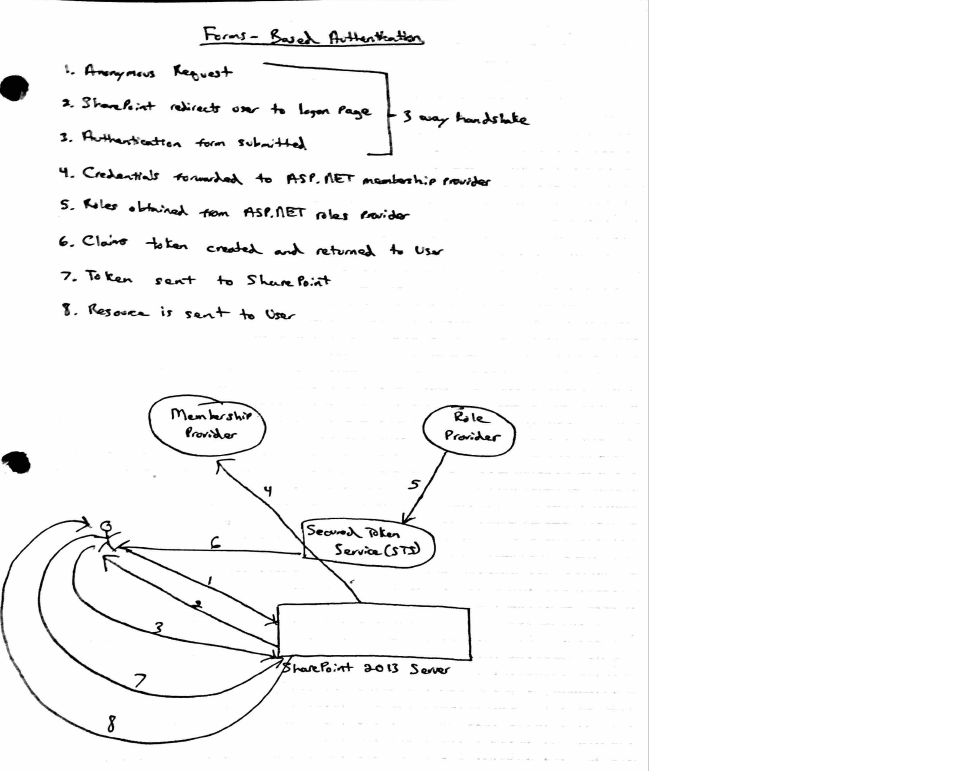 Forms-Based Authentication
1. Anonymous Request
2. SharePoint redirects user to logon page
3 way handshake
3. Authentication form submitted
4. Credentials forwarded to ASP.NET membership provider
5. Roles obtained from ASP.NET roles provider
6. Claims token created and returned to User
7. Token sent to SharePoint
8. Resource is sent to User
Membership
Provider
Role
Provider
4
5
Secured Token
Service (STS)
6
1
2
3
SharePoint 2013 Server
7
8